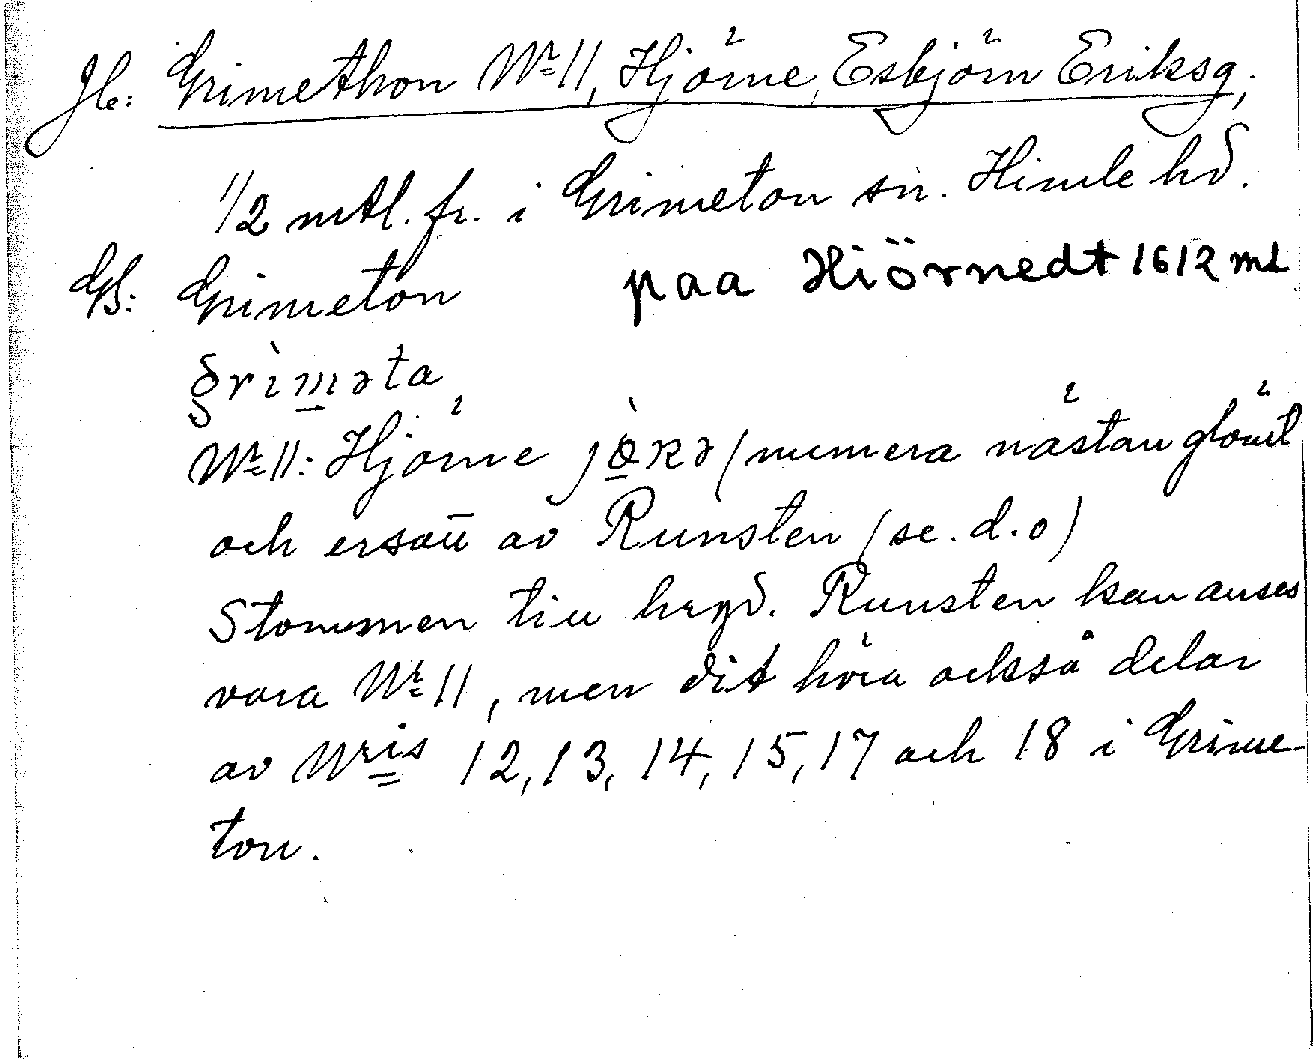 Jb: Grimethon Nr 11, Hjörne, Esbjörn Eriksg,
1/2 mtl. fr. i Grimeton sn. Himle hd.
GB: Grimeton paa Hiörnedt 1612 ml
grìməta
Nr 11: Hjörne jö̀nə (numera nästan glömt
och ersatt av Runsten (se. d. o)
Stommen till hrgd. Runsten kan anses
vara Nr 11, men dit höra också delar
av Nris 12, 13, 14, 15, 17 och 18 i Grime-
ton.